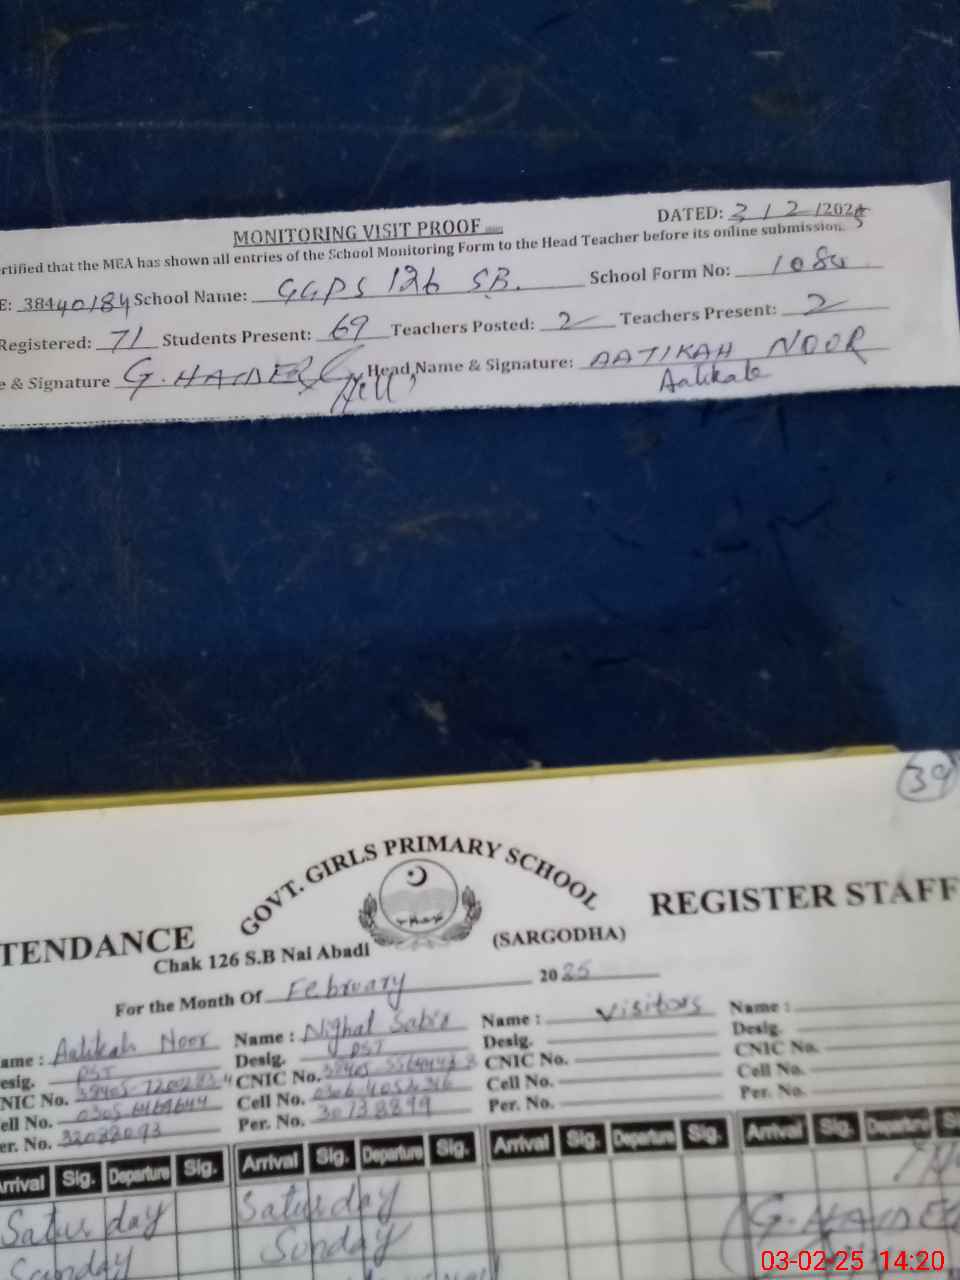 MONITORING VISIT PROOF
DATED: 3 / 2 /2025
ertified that the MEA has shown all entries of the School Monitoring Form to the Head Teacher before its online submission.
E: 38440184 School Name: GGPS 126 SB. School Form No: 1084
Registered: 71 Students Present: 69 Teachers Posted: 2 Teachers Present: 2
e & Signature G. HAIDER Head Name & Signature: AATIKAH NOOR
Aatikah
39
GOVT. GIRLS PRIMARY SCHOOL
TENDANCE REGISTER STAFF
Chak 126 S.B Nai Abadi (SARGODHA)
For the Month Of February 2025
ame : Aatikah Noor Name : Nighat Sabir Name : Visitors Name :
esig. PST Desig. PST Desig. Desig.
NIC No. CNIC No. CNIC No. CNIC No.
ell No. Cell No. Cell No. Cell No.
er. No. 32022093 Per. No. 30738899 Per. No. Per. No.
rrival Sig. Departure Sig. Arrival Sig. Departure Sig. Arrival Sig. Departure Sig. Arrival Sig. Departure
Saturday Saturday
Sunday Sunday
G. HAIDER
03-02-25 14:20